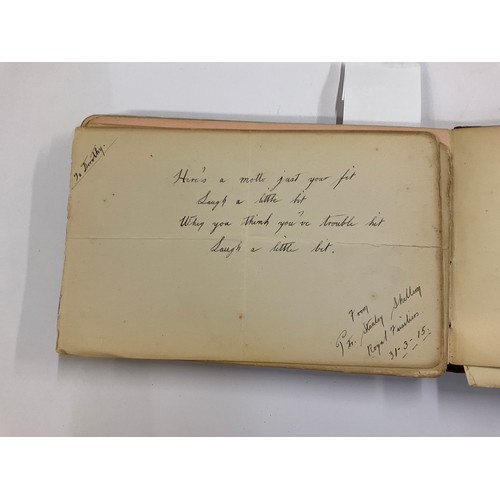 To Dorothy.
Here's a motto just your fit
Laugh a little bit
When you think you've trouble hit
Laugh a little bit.
From
Pte. Stanley
Royal Fusiliers
31-3-15.